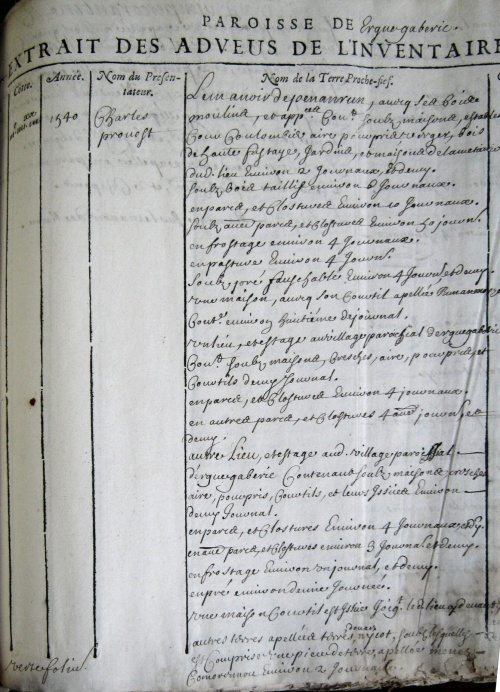 PAROISSE DE Ergue-gaberic.
EXTRAIT DES ADVEUS DE L'INVENTAIRE
Cotte. Année. Nom du Presentateur. Nom de la Terre Proche-fief.
1540 Charles prouost
Le manoir de penanreun, aueq ses bois
moulins, et app.ces Cont. soubz maisons, estables
Cour Coulombier aire pourpris verger, bois
de haute fustaye, Jardins, et maisons de la metairie
dud. lieu Environ 2 Journaux, et demy.
soubz bois taillis environ 6 Journaux.
en parcs, et Clostures Environ 20 Journaux.
soubz autres parcs, et Clostures Environ 30 journ.
en frostage environ 4 Journaux.
en pasture Environ 4 Journ.
soubz pré fauschable Environ 4 Journ. et demy
vne maison, aueq son Courtil apellée
Cont. environ huitiéme de journal.
vn lieu, et estage au village paroissial d'erguegaberic
Cont. soubz maisons, Creches, aire, pourpris, et
Courtils demy Journal.
en parcs, et Clostures Environ 4 journaux.
en autres parcs, et Clostures 4 journ. et
demy.
autre Lieu, et estage aud. village paroissial
d'erguegaberic Contenant soubz maisons creches
aire, pourpris, Courtils, et leurs Issues Environ
demy Journal.
en parcs, et Clostures Environ 4 Journaux, et dy.
en autres parcs, et Clostures environ 3 Journal et demy.
en frostage Environ vn journal, et demy.
en pré environ demie Journée.
vne maison Courtil et Issue
autres terres apellées terres douar nycot, soubz lesquelles
est Comprise vne piece de terre apellée
Environ 2 Journaux
verte folio.